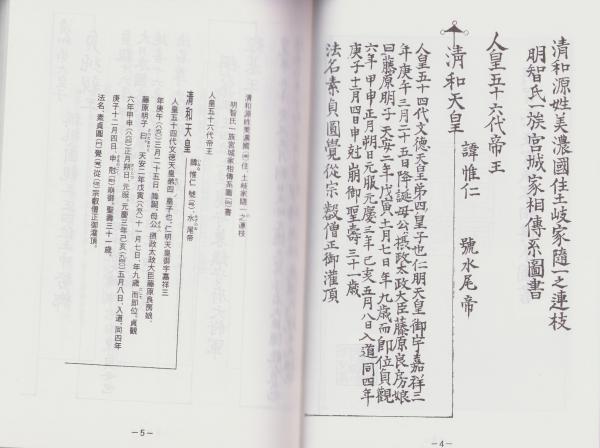 清和源姓美濃國住土岐家隨一之連枝
明智氏一族宮城家相傳系圖書
人皇五十六代帝王
清和天皇 諱惟仁 號水尾帝
人皇五十四代文德天皇第四皇子也仁明天皇御宇嘉祥三
年庚午三月二十五日降誕母公摂政太政大臣藤原良房娘
曰藤原明子天安二年戊寅十一月七日年九歳而即位貞觀
六年甲申正月朔日元服元慶三年己亥五月八日入道同四年
庚子十二月四日申尅崩御聖壽三十一歳
法名素貞圓覺從宗叡僧正御灌頂
－4－
清和源姓美濃國住土岐家隨一之連枝
明智氏一族宮城家相傳系圖書
人皇五十六代帝王
清和天皇 諱惟仁 號水尾帝
人皇五十四代文德天皇第四皇子也。仁明天皇御宇嘉祥三
年庚午三月二十五日、降誕、母公摂政太政大臣藤原良房娘、
藤原明子曰、天安二年戊寅十一月七日、年九歳而即位。貞觀
六年甲申正月朔日、元服、元慶三年己亥五月八日、入道、同四年
庚子十二月四日、申尅崩御、聖壽三十一歳、
法名、素貞圓覺從宗叡僧正御灌頂。
－5－